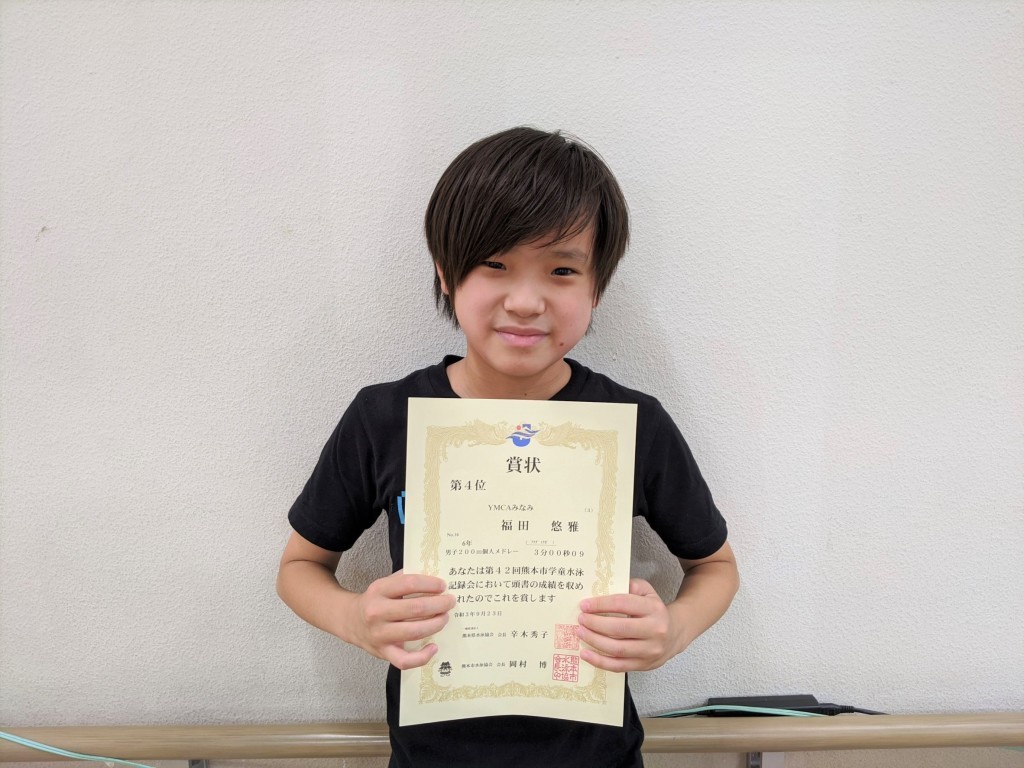 賞状
第４位
YMCAみなみ
福田 悠雅
No.16
6年
男子２００ｍ個人メドレー ３分００秒０９
あなたは第４２回熊本市学童水泳
記録会において頭書の成績を収め
れたのでこれを賞します
令和３年９月２３日
会長 辛木秀子
熊本市水泳協会 会長 岡村 博